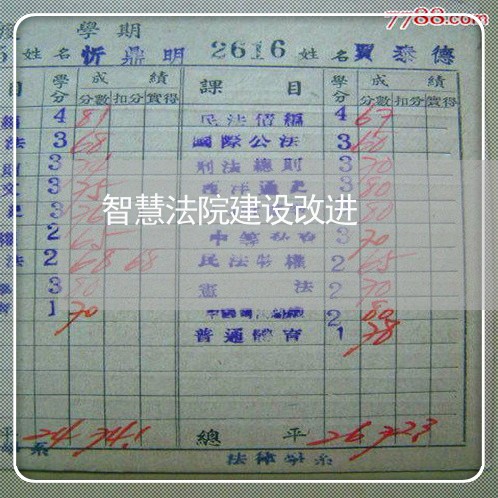 7788.com
度 學期
姓名 忻鼎明 2616 姓名 賈泰德
目 學分 成績 課目 學分 成績
分數 扣分 實得 分數 扣分 實得
4 81 民法債編 4 67
法 3 68 國際公法 3 60
3 刑法總則 3 70
文 3 75 西洋通史 3 80
3 80
智慧法院建设改进
權 2 65 3 70
法 2 68 68 民法物權 2 65
3 80 憲法 2 70
育 1 70 2 80
普通體育 1 78
平 24 74.1 總平 26 72.3
系 法律學系